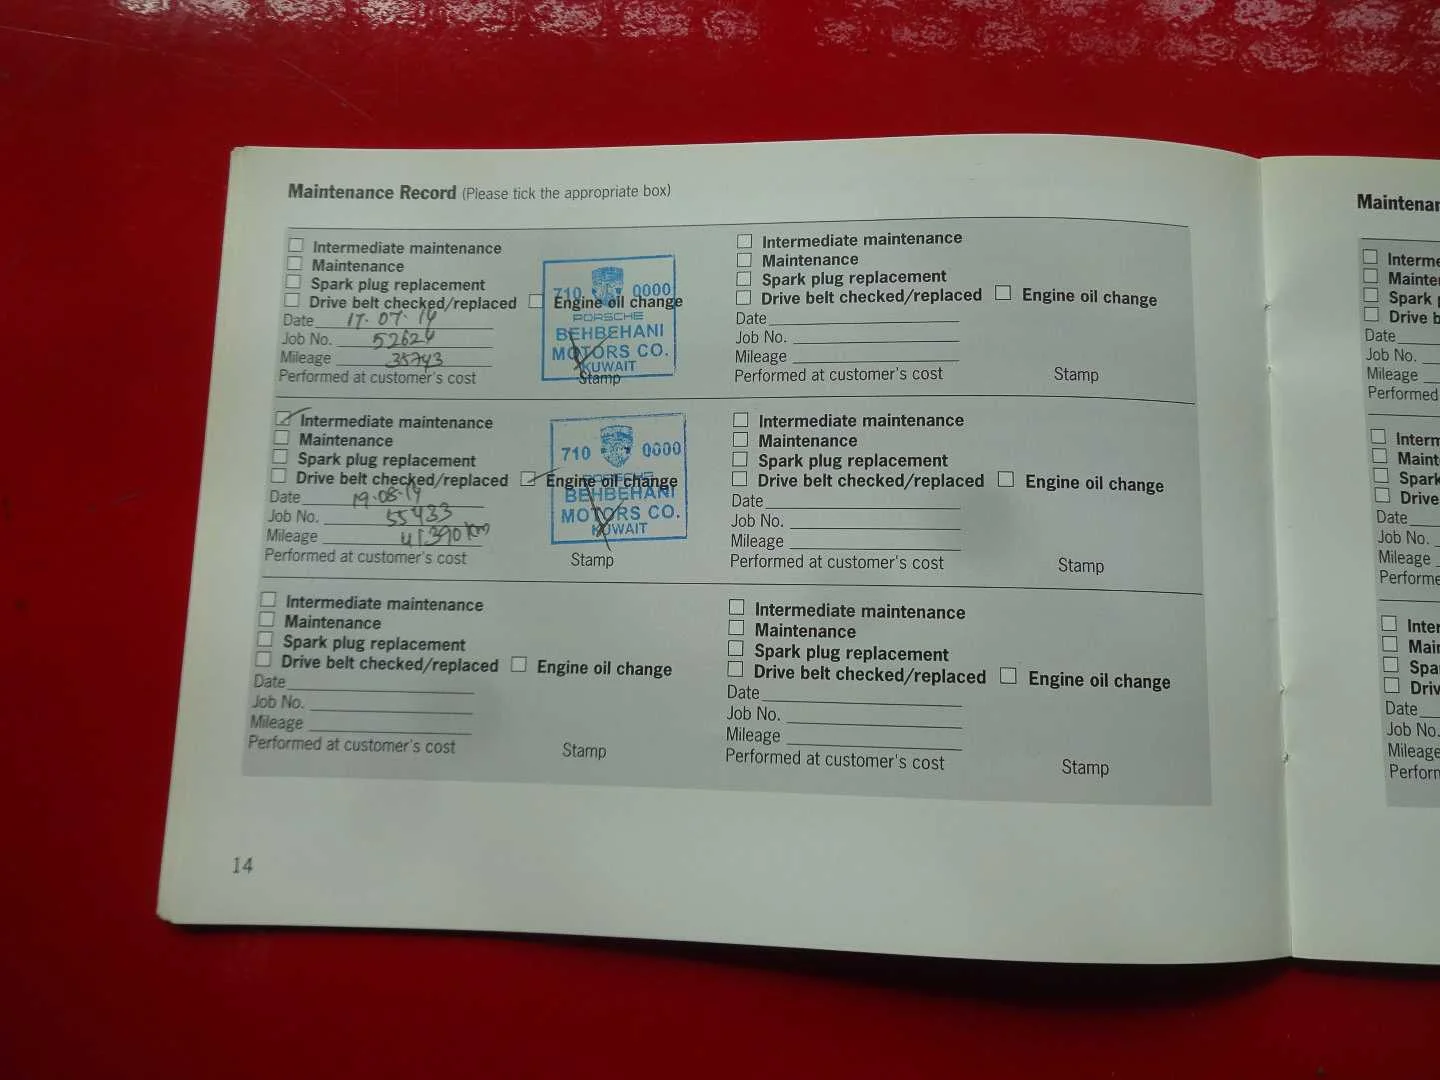 Maintenance Record (Please tick the appropriate box)
Intermediate maintenance
Maintenance
Spark plug replacement
Drive belt checked/replaced Engine oil change
Date 17.07.14
Job No. 52624
Mileage 35743
Performed at customer's cost
Stamp
710 0000
PORSCHE
BEHBEHANI
MOTORS CO.
KUWAIT
Intermediate maintenance
Maintenance
Spark plug replacement
Drive belt checked/replaced Engine oil change
Date
Job No.
Mileage
Performed at customer's cost Stamp
Intermediate maintenance
Maintenance
Spark plug replacement
Drive belt checked/replaced Engine oil change
Date 19.08.14
Job No. 55433
Mileage 41390 km
Performed at customer's cost Stamp
710 0000
PORSCHE
BEHBEHANI
MOTORS CO.
KUWAIT
Intermediate maintenance
Maintenance
Spark plug replacement
Drive belt checked/replaced Engine oil change
Date
Job No.
Mileage
Performed at customer's cost Stamp
Intermediate maintenance
Maintenance
Spark plug replacement
Drive belt checked/replaced Engine oil change
Date
Job No.
Mileage
Performed at customer's cost Stamp
Intermediate maintenance
Maintenance
Spark plug replacement
Drive belt checked/replaced Engine oil change
Date
Job No.
Mileage
Performed at customer's cost Stamp
14
Maintenar
Interme
Mainter
Spark p
Drive b
Date
Job No.
Mileage
Performed
Interm
Maint
Spark
Drive
Date
Job No.
Mileage
Performe
Inter
Mai
Spa
Driv
Date
Job No.
Mileage
Perforn